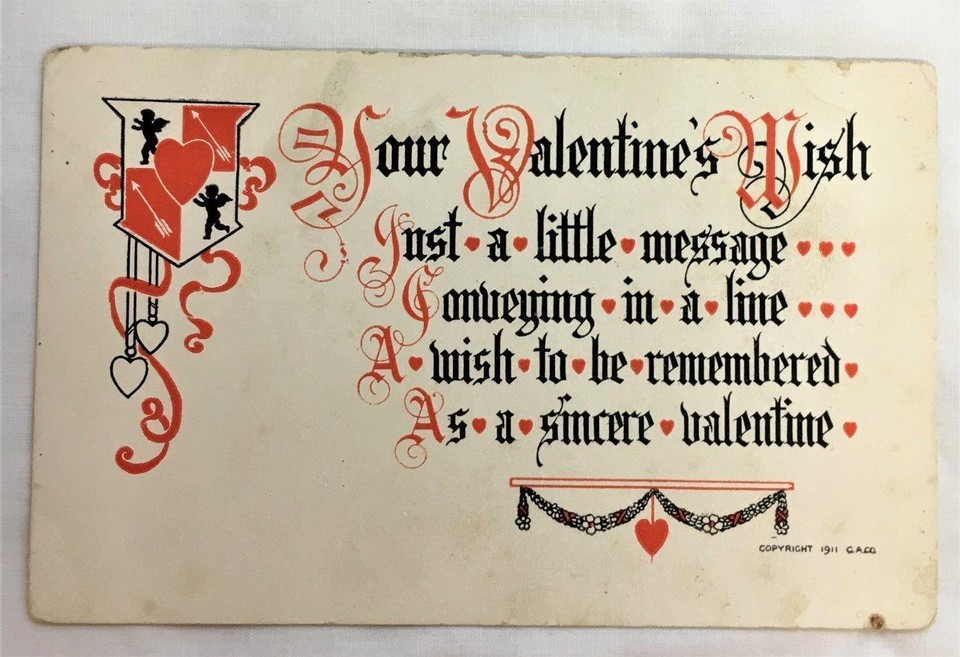 Your Valentine's Wish
Just a little message
Conveying in a line
A wish to be remembered
As a sincere valentine
COPYRIGHT 1911 G.A.CO.